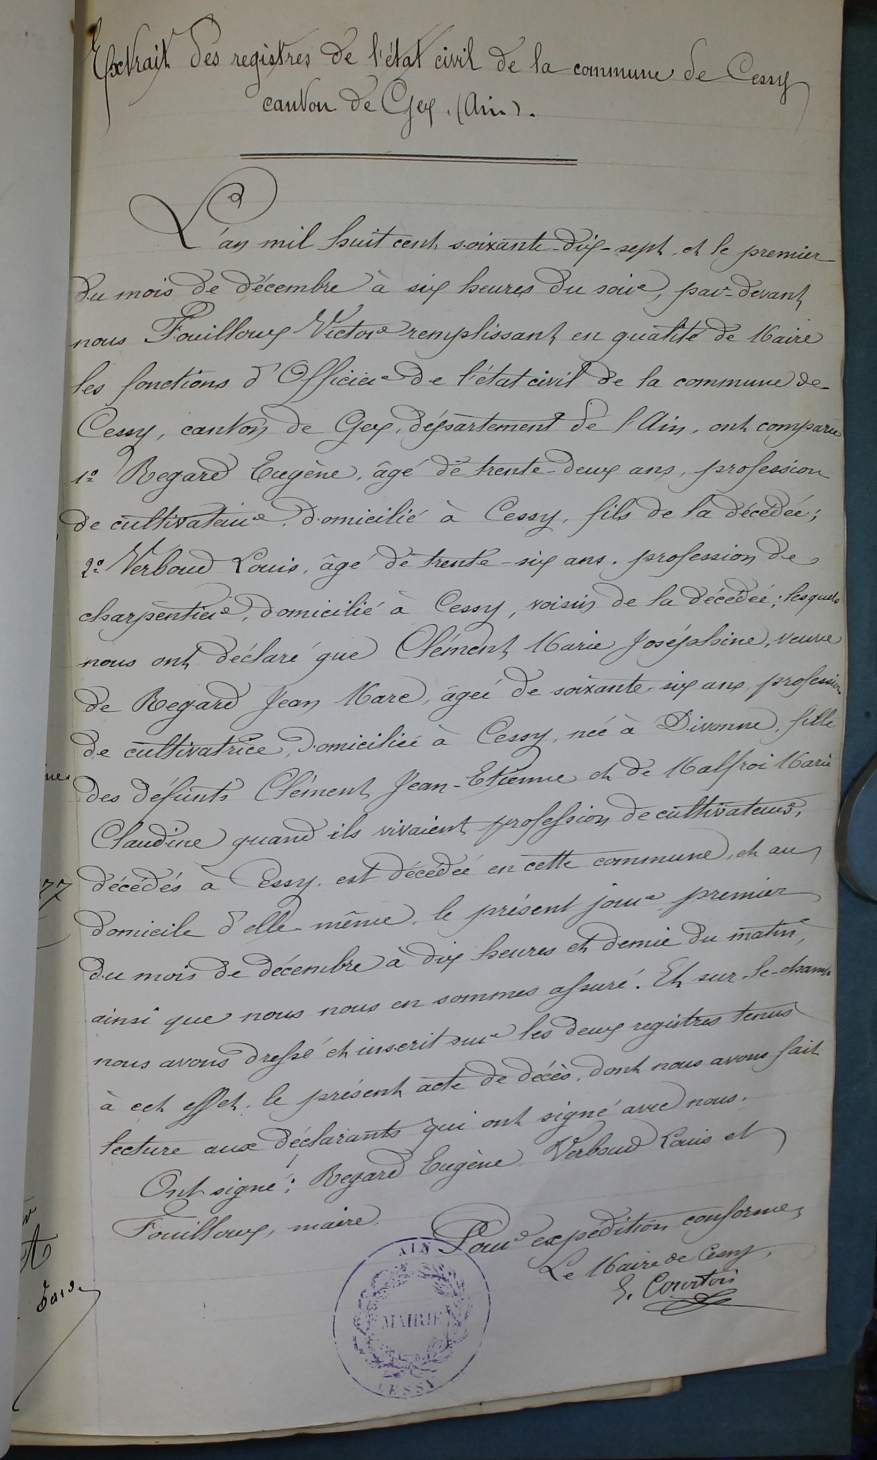 Extrait des registres de l'état civil de la commune de Cessy
canton de Gex. (Ain).
L'an mil huit cent soixante-dix-sept, et le premier
du mois de décembre à six heures du soir, par-devant
nous Fouilloux Victor remplissant en qualité de Maire
les fonctions d'Officier de l'état civil de la commune de
Cessy, canton de Gex, département de l'Ain, ont comparu
1º Regard Eugène, âgé de trente-deux ans, profession
de cultivateur, domicilié à Cessy, fils de la décédée;
2º Verboud Louis, âgé de trente-six ans, profession de
charpentier, domicilié à Cessy, voisin de la décédée; lesquels
nous ont déclaré que Clément Marie Joséphine, veuve
de Regard Jean Marc, âgée de soixante-six ans, profession
de cultivatrice, domiciliée à Cessy, née à Divonne, fille
des défunts Clément Jean-Etienne et de Malfroi Marie
Claudine quand ils vivaient profession de cultivateurs,
décédés à Cessy, est décédée en cette commune, et au
domicile d'elle même, le présent jour premier
du mois de décembre à dix heures et demie du matin,
ainsi que nous nous en sommes assuré. Et sur-le-champ
nous avons dressé et inscrit sur les deux registres tenus
à cet effet, le présent acte de décès, dont nous avons fait
lecture aux déclarants qui ont signé avec nous.
Ont signé: Regard Eugène Verboud Louis et
Fouilloux, maire.
Pour expédition conforme,
Le Maire de Cessy,
E. Courtois
AIN
MAIRIE
CESSY
77